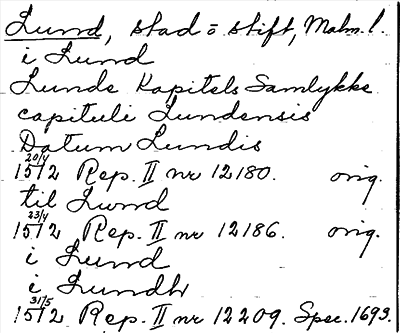 Lund, stad o stift, Malm. l.
i Lund
Lunde Kapitels Samlykke
capituli Lundensis
Datum Lundis
15 20/4 12 Rep. II nr 12180. orig.
til Lund
15 23/4 12 Rep. II nr 12186. orig.
i Lund
i Lundh
15 31/5 12 Rep. II nr 12209. Spec. 1693.